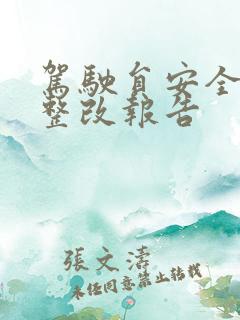 駕駛自安全
整改報告
張文濤
未經同意禁止轉載